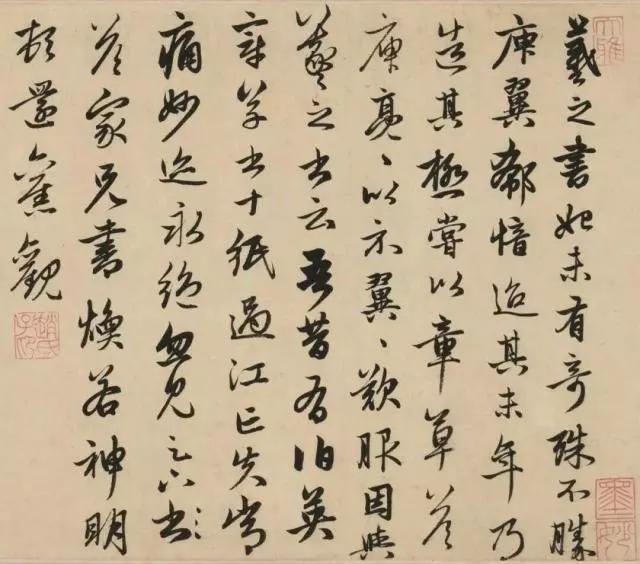 大雅
羲之書始未有奇殊不勝
庾翼郗愔迨其末年乃
造其極嘗以章草答
庾亮〻以示翼〻歎服因與
羲之書云吾昔有伯英
章草書十紙過江亡失常
痛妙迹永絕忽見足下書
答家兄書煥若神明
頓還舊觀
趙氏子昂